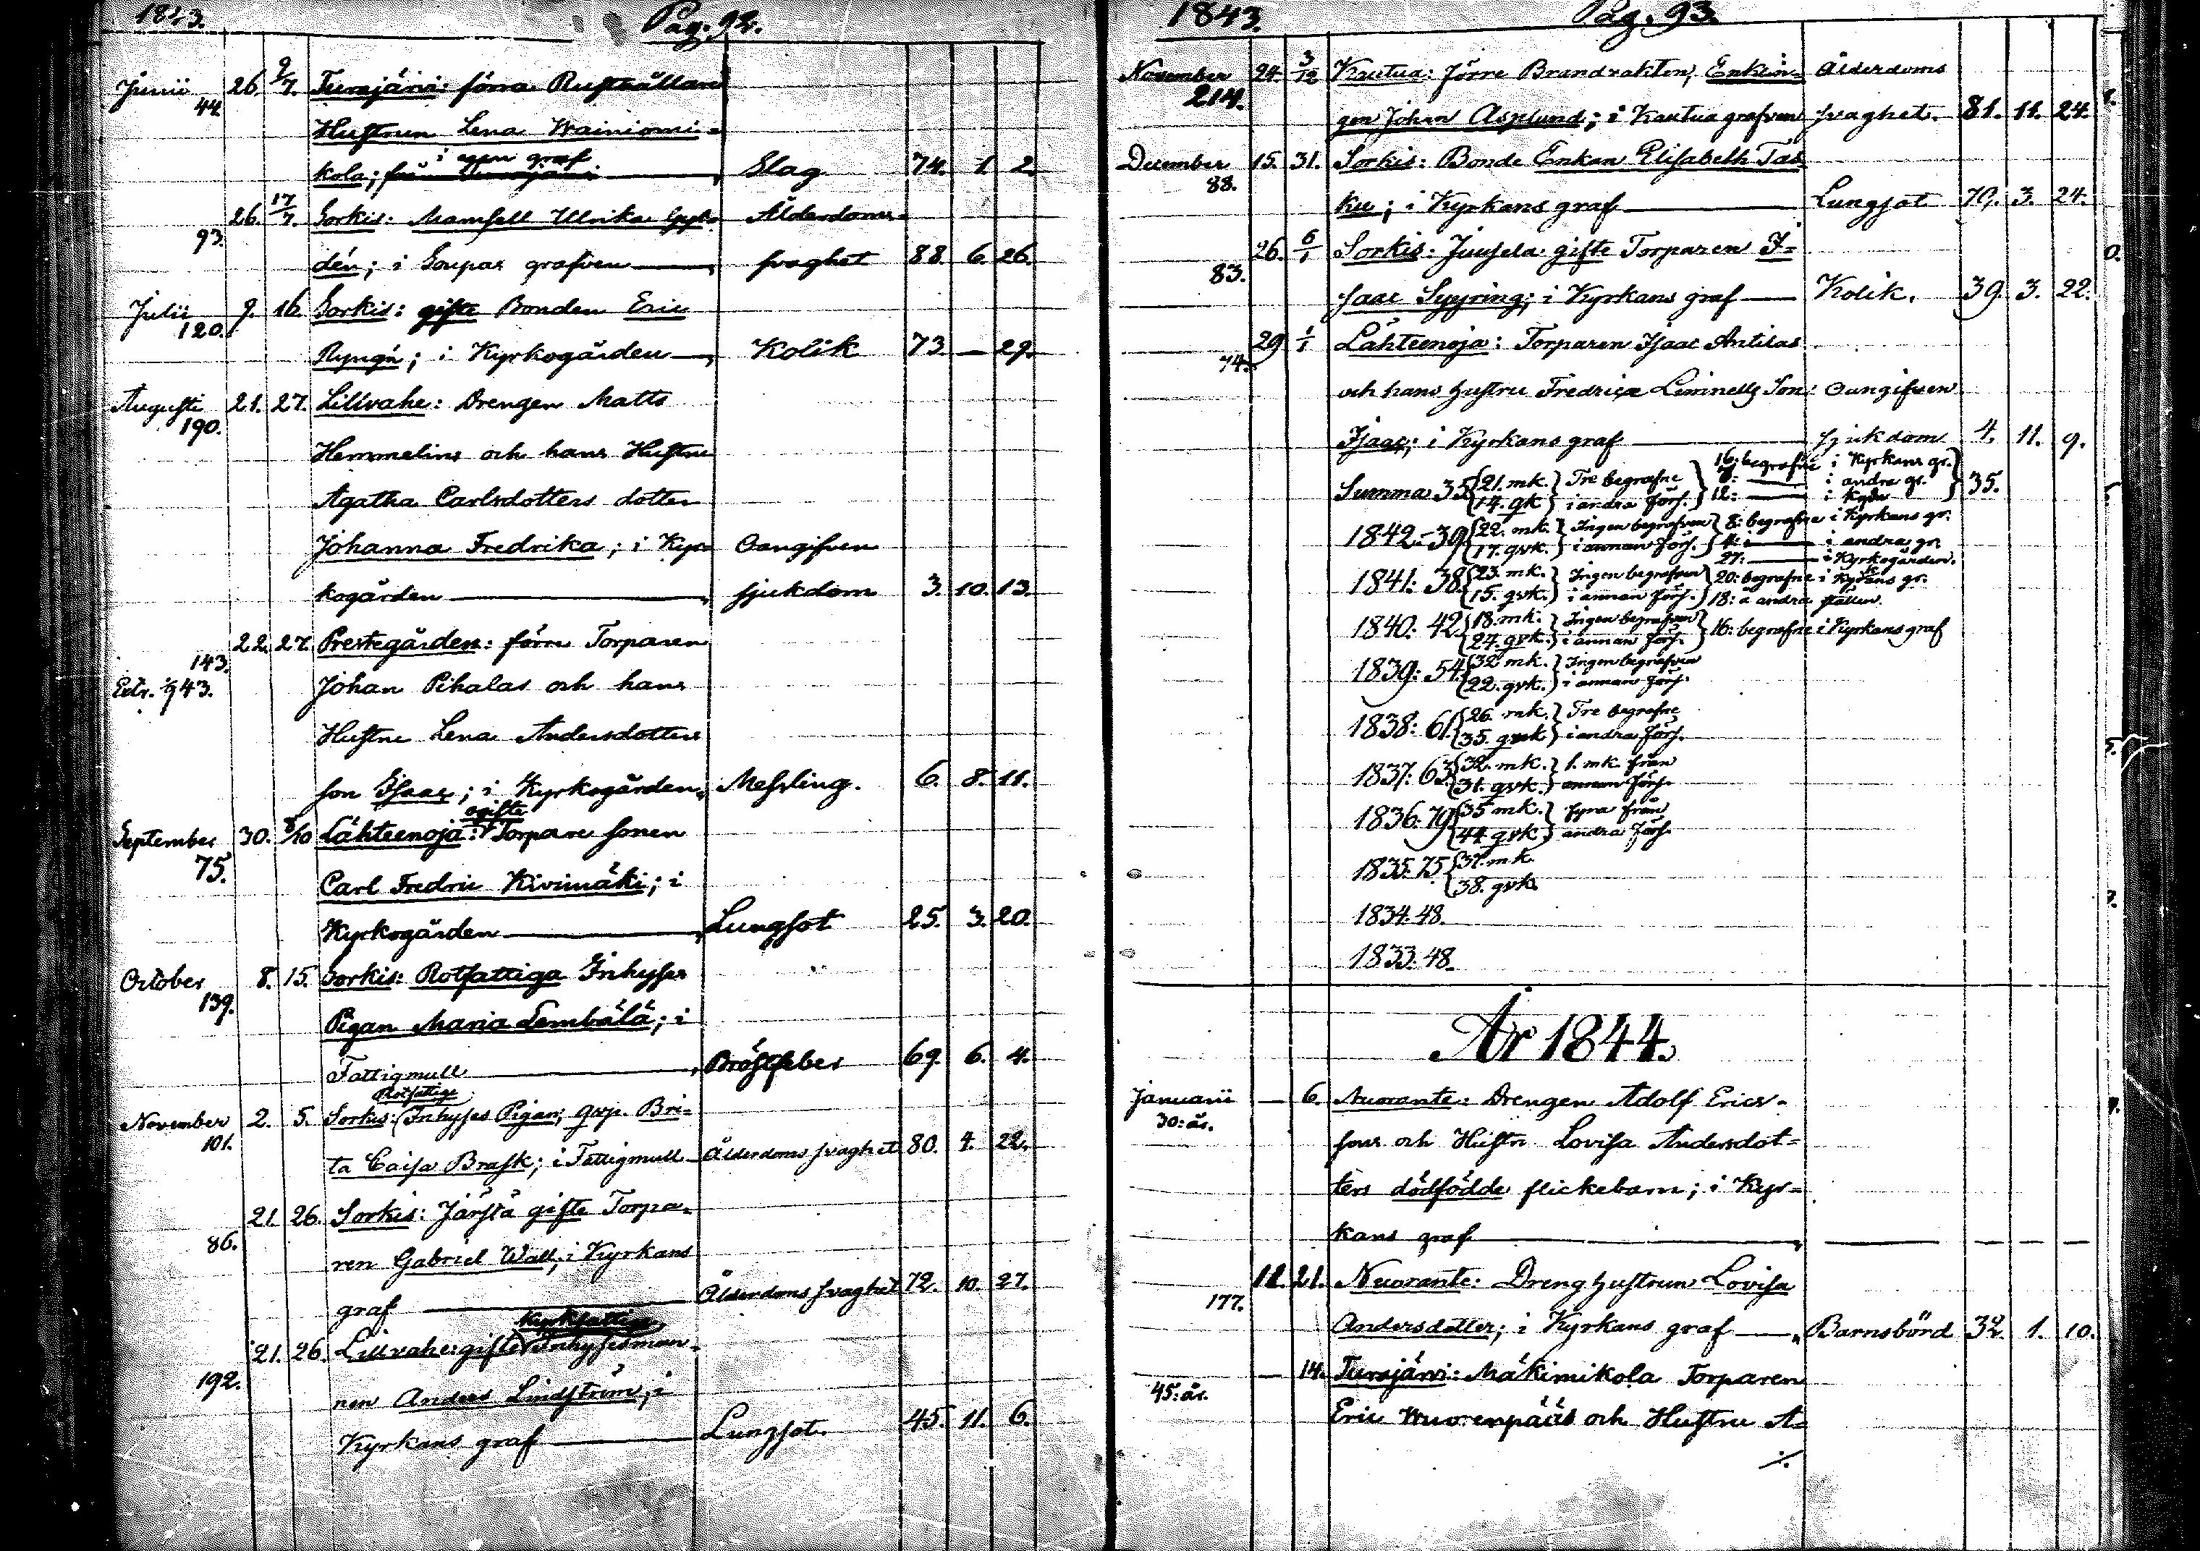 1843.
Pag. 92.
Junii 26. 9/7. Tursjärvi: förra Rusthållare
44
Hustrun Lena Wainiomi-
i egen graf
kola; Slag 74. 1. 2.
26. 17/7. Sorkis: Mamsell Ulrika Gyl-
Ålderdoms-
93.
dén; i Soupas grafven svaghet 88. 6. 26.
Julii 9. 16. Sorkis: gifte Bonden Eric
120.
i Kyrkogården Kolik 73 — 29.
Augusti 21. 27. Lillvahe: Drengen Matts
190.
Hemmelins och hans Hustru
Agatha Carlsdotters dotter
Johanna Fredrika; i Kyr- Oangifven
kogården sjukdom 3. 10. 13.
22. 27. Prestegården: förre Torparen
143.
Johan Pihalas och hans
Hustru Lena Andersdotters
son Isaac; i Kyrkogården Messling. 6. 8. 11.
ogifte
September 30. 8/10 Lähteenoja: Torpare sonen
75.
Carl Fredric Kivimäki; i
Kyrkogården Lungsot 25. 3. 20.
October 8. 15. Sorkis: Rotfattiga Inhyses
139.
Pigan Maria Lembälä; i
Fattigmull Bröstfeber 69. 6. 4.
Rotfattige
November 2. 5. Sorkis: Inhyses Pigan; qvp. Bri-
101.
ta Caisa Brask; i Fattigmull Ålderdoms svaghet 80. 4. 22.
21. 26. Sorkis: Järstä gifte Torpa-
86.
ren Gabriel Wall; i Kyrkans
graf Ålderdoms svaghet 72. 10. 27.
Kyrkfattige
21. 26. Lillvahe: gifte Inhysesman-
192.
nen Anders Lindström; i
Kyrkans graf Lungsot. 45. 11. 6.
1843.
Pag. 93.
November 24. 3/12 Kautua: Förre Brandvakten, Enklin- Ålderdoms
214.
gen Johan Asplund; i Kautua grafven svaghet. 81. 11. 24.
December 15. 31. Sorkis: Bonde Enkan Elisabeth Tas
88.
ku; i Kyrkans graf Lungsot 79. 3. 24.
26. 6/1 Sorkis: Juusela gifte Torparen I-
83.
saac Syyring; i Kyrkans graf Kolik. 39. 3. 22.
29 1/1 Lähteenoja: Torparen Isaac Antilas
74.
och hans hustru Fredrica Leninells Son Oangifven
Isaac; i Kyrkans graf sjukdom 4. 11. 9.
Summa 35 {21. mk. 14. qk} Tre begrafne i andra förs. } 16: begrafne i Kyrkans gr. i andra gr. 12: i Kgdn } 35.
1842: 39 {22. mk. 17. qvk.} Ingen begrafven i annan förs. } 8: begrafne i Kyrkans gr. 4: i andra gr. 27: i Kyrkogården.
1841: 38 {23. mk. 15. qvk.} Ingen begrafven i annan förs. } 20: begrafne i Kyrkans gr. 18: å andra ställen.
1840: 42 {18. mk. 24. qvk.} Ingen begrafven i annan förs. } 16: begrafne i Kyrkans graf
1839: 54 {32 mk. 22. qvk.} Ingen begrafven i annan förs.
1838: 61 {26. mk. 35. qvk} Tre begrafne i andra förs.
1837: 63 {32. mk. 31. qvk.} 1. mk. från annan förs.
1836: 79 {35 mk. 44 qvk} fyra från andra förs.
1835: 75 {37. mk. 38. qvk.
1834: 48.
1833: 48.
År 1844.
Januarii — 6. Nuorante: Drengen Adolf Erics-
30: år.
sons och Hustru Lovisa Andersdot-
ters dödfödde flickebarn; i Kyr-
kans graf
12. 21. Nuorante: Dreng hustrun Lovisa
177.
Andersdotter; i Kyrkans graf Barnsbörd 32. 1. 10.
— 14. Tursjärvi: Mäkimikola Torparen
45: år.
Eric Wuorenpääs och Hustru A-
./.